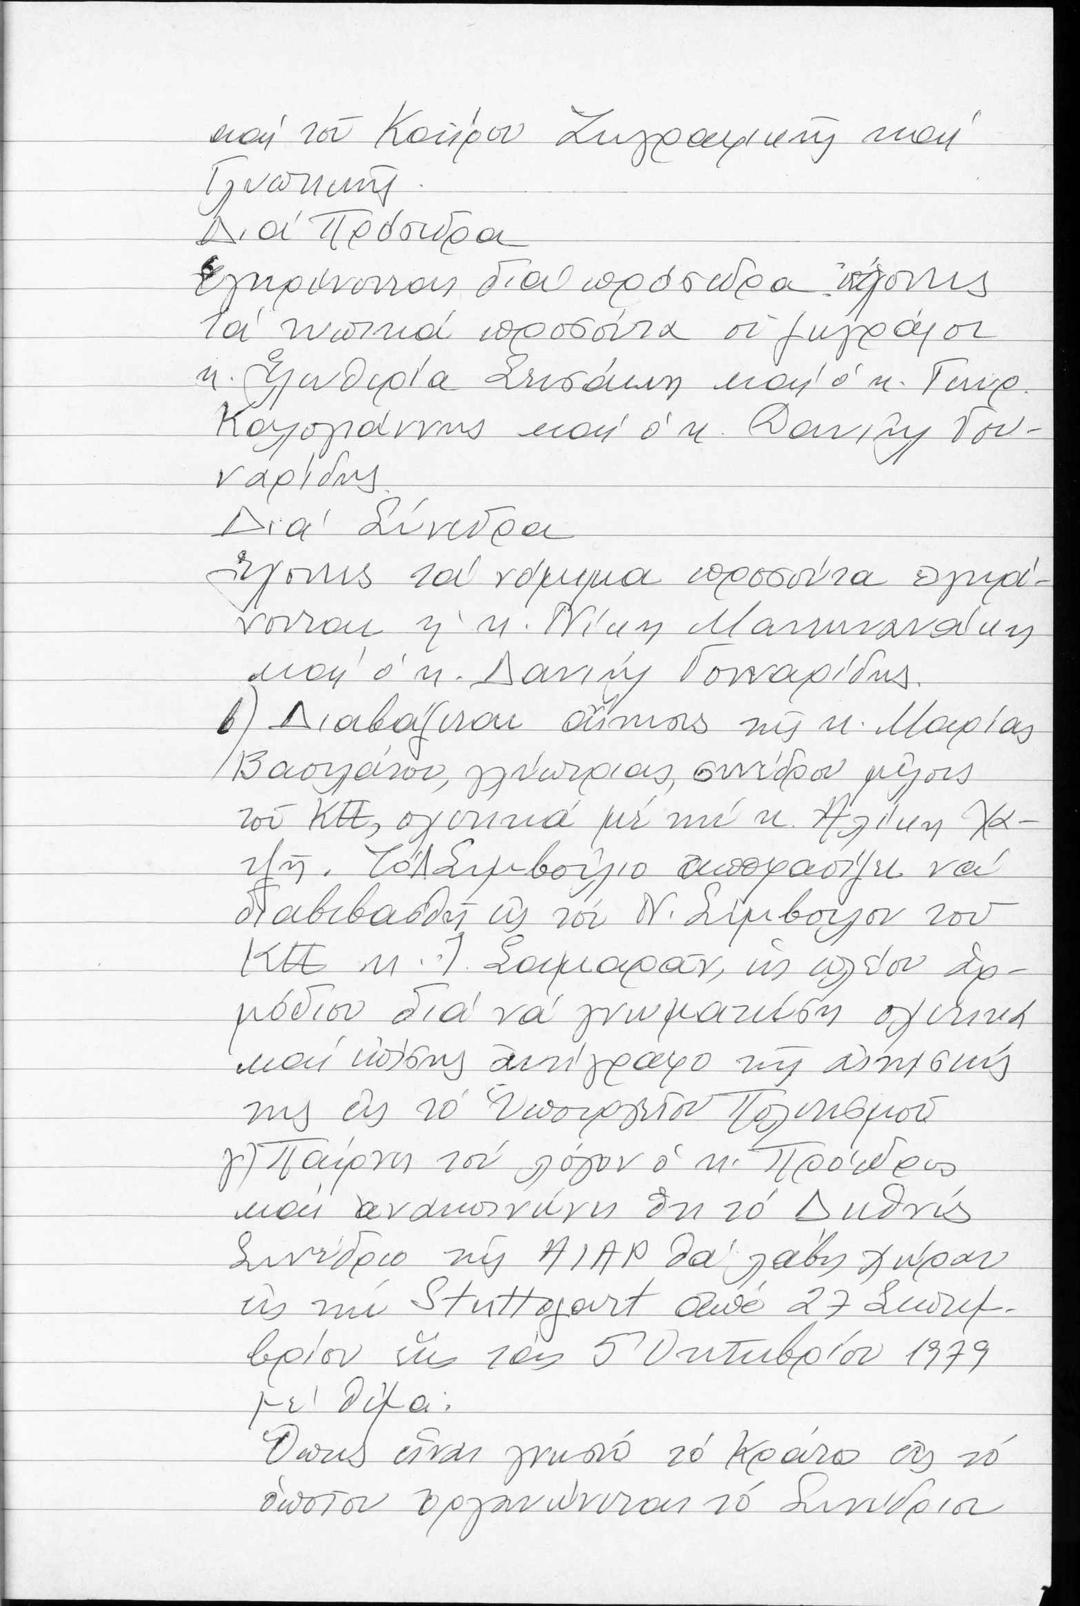 καί τοῦ Κύπρου Ζωγραφικῆς καί
Γλυπτικῆς.
Διά Πρόεδρα
Ἐγκρίνονται διά πρόεδρα ἔχοντες
τά τυπικά προσόντα οἱ ζωγράφοι
κ. Ἐλευθερία καί ὁ κ. Γεώρ.
Καλογιάννης καί ὁ κ. Δανιήλ Γου-
ναρίδης.
Διά Σύνεδρα
Ἔχοντες τά νόμιμα προσόντα ἐγκρί-
νονται ἡ κ. Νίκη
καί ὁ κ. Δανιήλ Γουναρίδης.
β) Διαβάζεται αἴτησις τῆς κ. Μαρίας
Βασιλάτου, γλύπτριας, συνέδρου μέλους
τοῦ ΚΠ, σχετικά μέ τήν κ. Ἀλίκη Χα-
τζῆ. Τό Δ Συμβούλιο ἀποφασίζει νά
διαβιβασθῆ εἰς τόν Ν. Σύμβουλον τοῦ
ΚΠ κ. Ἰ. Σαμαρᾶν, ὡς πλέον ἁρ-
μόδιον διά νά γνωματεύση σχετικά
καί ἐπίσης ἀντίγραφο τῆς αἰτήσεώς
της εἰς τό Ὑπουργεῖον Πολιτισμοῦ
γ) Παίρνει τόν λόγον ὁ κ. Πρόεδρος
καί ἀνακοινώνει ὅτι τό Διεθνές
Συνέδριο τῆς AIAP θά λάβη χώραν
εἰς τήν Stuttgart ἀπό 27 Σεπτεμ-
βρίου ἕως τάς 5 Ὀκτωβρίου 1979
μέ θέμα:
Ὅπως εἶναι γνωστό τό Κράτος εἰς τό
ὁποῖον ὀργανώνεται τό Συνέδριον